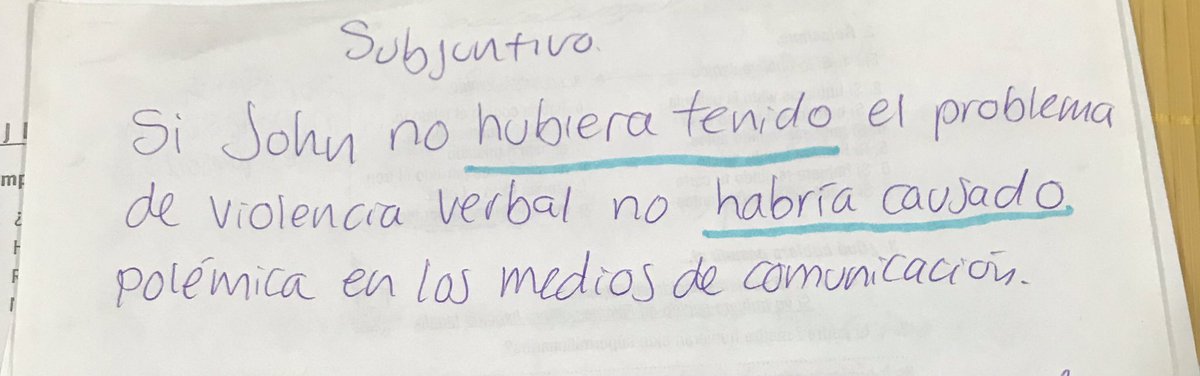 Subjuntivo.
Si John no hubiera tenido el problema
de violencia verbal no habría causado
polémica en los medios de comunicación.